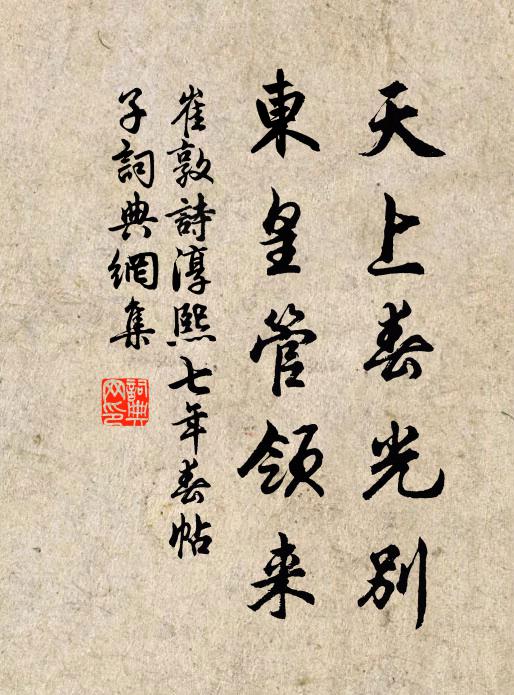 天上春光别
東皇管领来
崔敦詩淳熙七年春帖
子詞典網集
詞典
网印